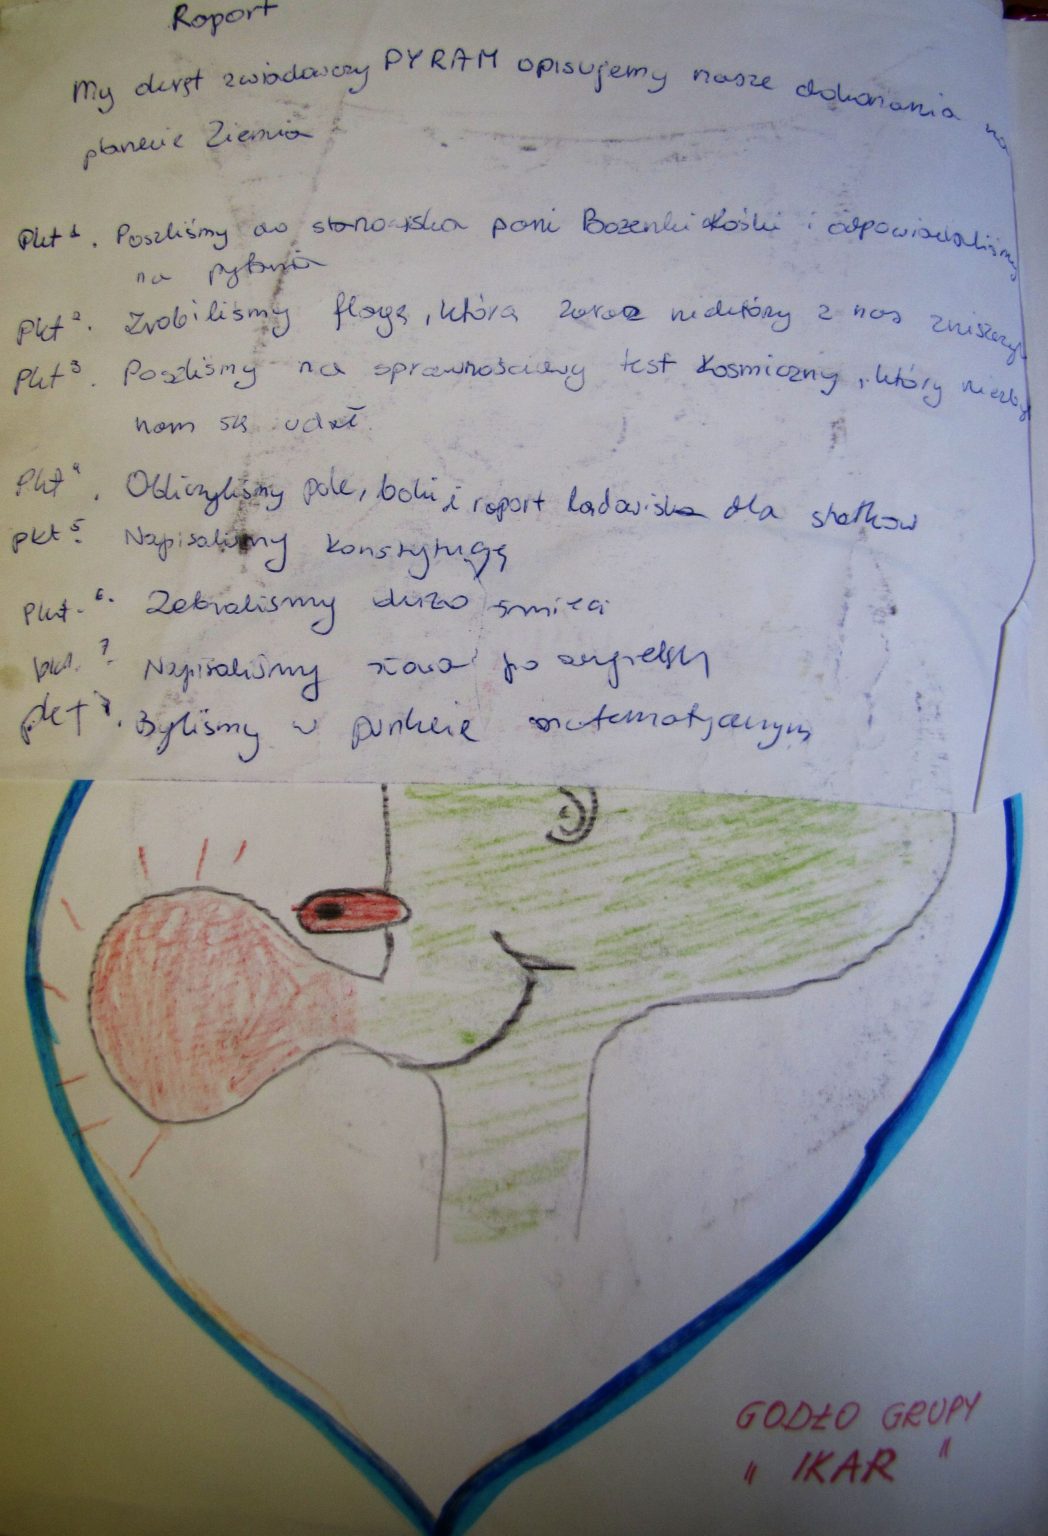 Raport
My okręt zwiadowczy PYRAM opisujemy nasze dokonania na
planecie Ziemia
Pkt 1. Poszliśmy do stanowiska pani Bożenki i odpowiadaliśmy
na pytania
Pkt 2. Zrobiliśmy flagę, którą zaraz niektórzy z nas zniszczyli
Pkt 3. Poszliśmy na sprawnościowy test kosmiczny, który niezbyt
nam się udał.
Pkt 4. Obliczyliśmy pole, boki i raport ladowiska dla statków
pkt 5. Napisaliśmy konstytucję
Pkt. 6. Zebraliśmy dużo śmieci
pkt. 7. Napisaliśmy słowa po angielsku
pkt 8. Byliśmy w punkcie matematycznym
GODŁO GRUPY
" IKAR "